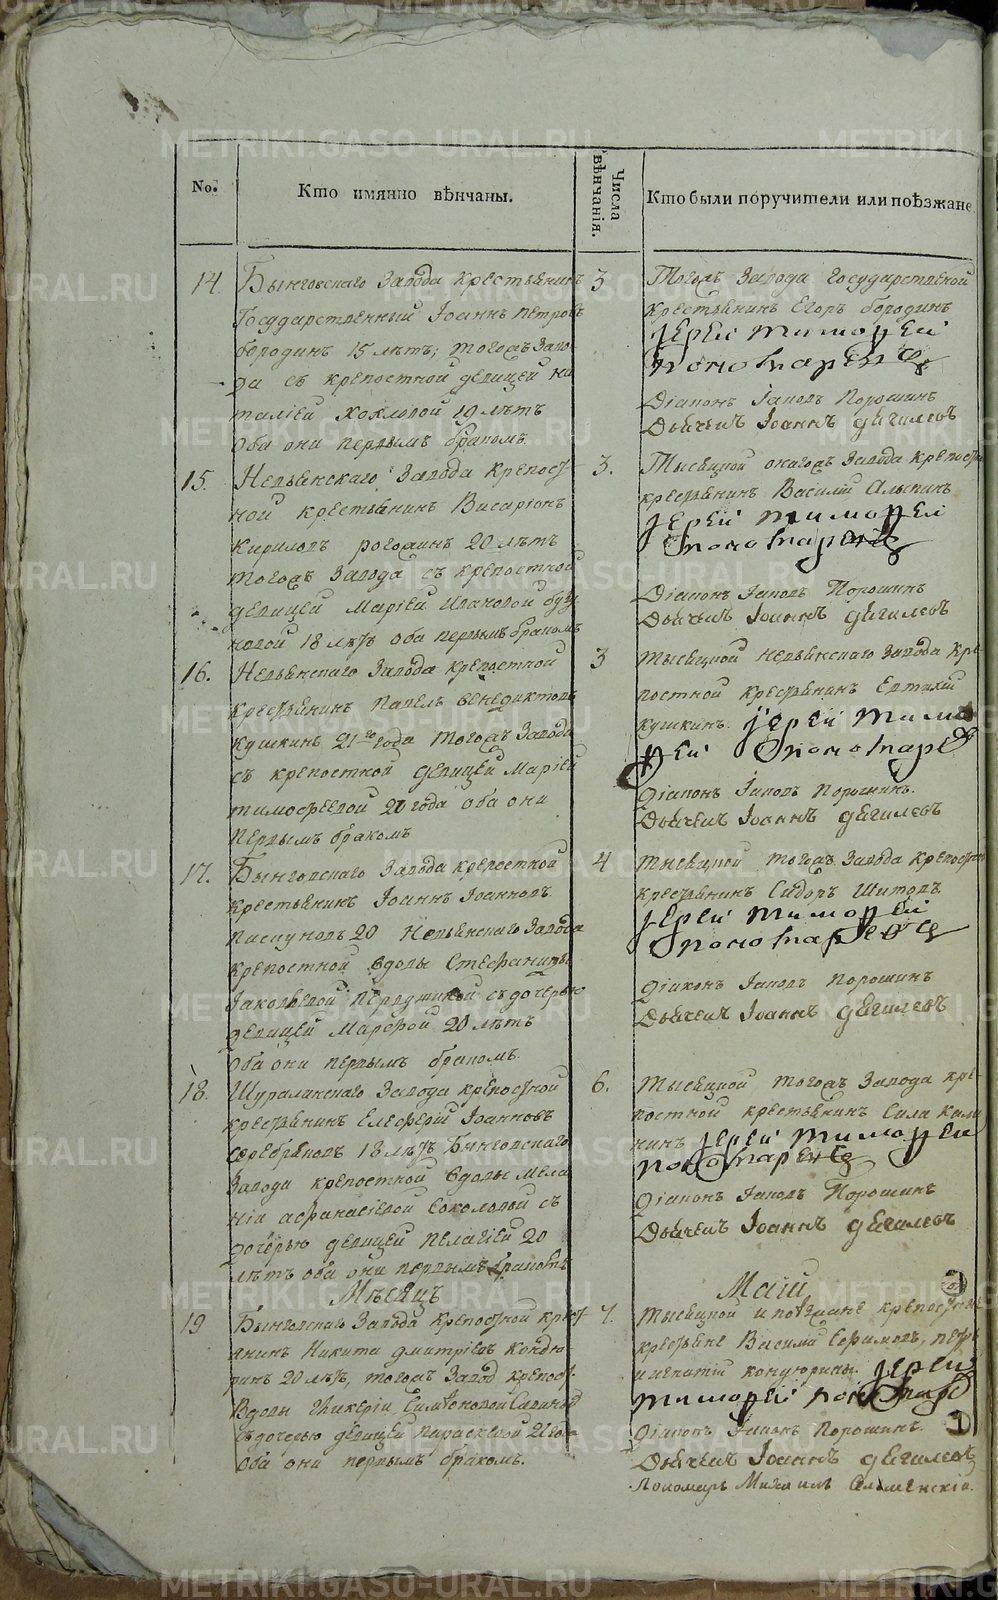 No.
Кто имянно вѣнчаны.
Числа вѣнчанія.
Кто были поручители или поѣзжане
14.
Бынговскаго Завода крестьянинъ
Государственный Іоаннъ Петровъ
бородинъ 15 лѣтъ; тогожъ Заво-
да съ крепостной девицей На
таліей Хохловой 19 лѣтъ
Оба они первымъ бракомъ.
3
Тогожъ Завода государственной
крестьянинъ Егоръ бородинъ
Іерей Тимофей
Пономаревъ
Діаконъ Іаковъ Порошинъ
Дьячекъ Іоаннъ Дягилевъ
15.
Невьянскаго Завода Крепост
ной крестьянинъ Висаріонъ
Кириловъ рогожинъ 20 лѣтъ
тогожъ Завода съ крепостной
девицей Маріей Ивановой
новой 18 лѣтъ оба первымъ бракомъ
3.
Тысяцкой онагожъ Завода Крепостн
крестьянинъ Василій
Іерей Тимофей
Пономаревъ
Діаконъ Іаковъ Порошинъ
Дьячекъ Іоаннъ Дягилевъ
16.
Невьянскаго Завода крепостной
крестьянинъ Павелъ Венедиктовъ
кушкинъ 21го года тогожъ Завода
съ крепостной девицей Маріей
тимофеевой 20 года оба они
первымъ бракомъ
3
Тысяцкой Невьянскаго Завода Кре-
постной крестьянинъ Евтихій
кушкинъ. Іерей Тимо
фей Пономаревъ
Діаконъ Іаковъ Порошинъ.
Дьячекъ Іоаннъ Дягилевъ
17.
Бынговскаго Завода крепостной
крестьянинъ Іоаннъ Іоанновъ
Пискуновъ 20 Невьянскаго Завода
крепостной Вдовы Стефаниды
Іаковлевой съ дочерью
девицей Марфой 20 лѣтъ
Оба они первымъ бракомъ.
4
Тысяцкой тогожъ Завода крепостн
крестьянинъ Сидоръ Шитовъ
Іерей Тимофей
Пономаревъ
Діаконъ Іаковъ Порошинъ
Дьячекъ Іоаннъ Дягилевъ
18.
Шуралинскаго Завода крепостной
крестьянинъ Елеферій Іоанновъ
серебряковъ 18 лѣтъ Бынговскаго
Завода крепостной Вдовы Мела
ніи афанасіевой Соколовой съ
дочерью девицей Пелагіей 20
лѣтъ оба они первымъ бракомъ
6.
Тысяцкой тогожъ Завода кре-
постной крестьянинъ Сила Кали
нинъ Іерей Тимофей
Пономаревъ
Діаконъ Іаковъ Порошинъ
Дьячекъ Іоаннъ Дягилевъ
Мѣсяцъ
Маій
19
Бынговскаго Завода крепостной крест
янинъ Никита Дмитріевъ Кондю
ринъ 20 лѣтъ, тогожъ Завод крепост.
Вдовы Гликеріи Симеоновой
съ дочерью девицей Параскевой
Оба они первымъ бракомъ.
7.
Тысяцкой и поезжане крепостныя
крестьяне Василій Ефимовъ, петръ
и игнатій кондюрины. Іерей
Тимофей Пономаревъ
Діаконъ Іаковъ Порошинъ.
Дьячекъ Іоаннъ Дягилевъ
Пономарь Михаилъ